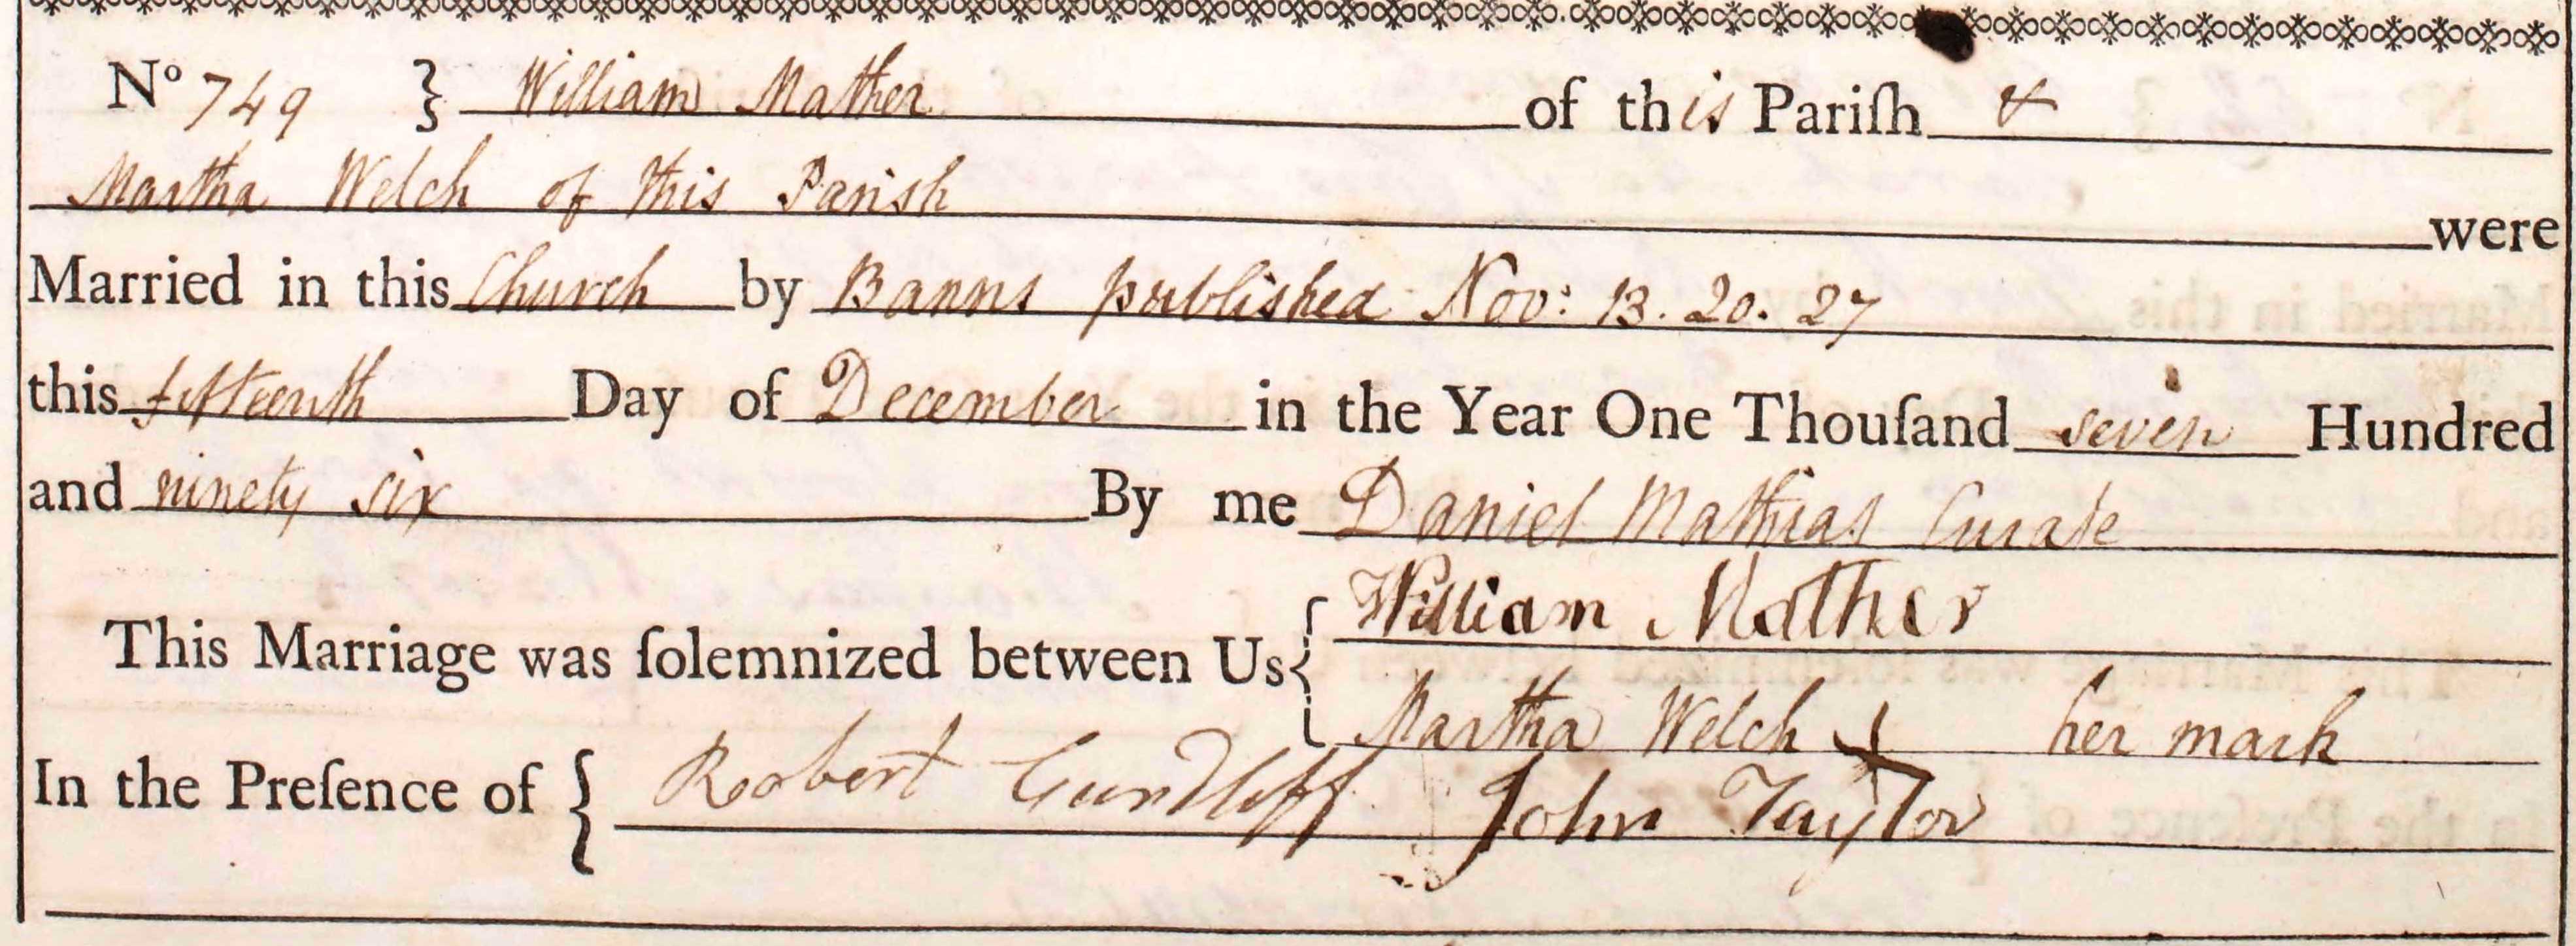 Nº 749 } William Mather of this Pariſh &
Martha Welch of this Parish were
Married in this Church by Banns published Nov: 13. 20. 27
this fifteenth Day of December in the Year One Thouſand seven Hundred
and ninety six By me Daniel Mathias Curate
This Marriage was ſolemnized between Us { William Mather
Martha Welch X her mark
In the Preſence of { Robert Cundliff John Taylor